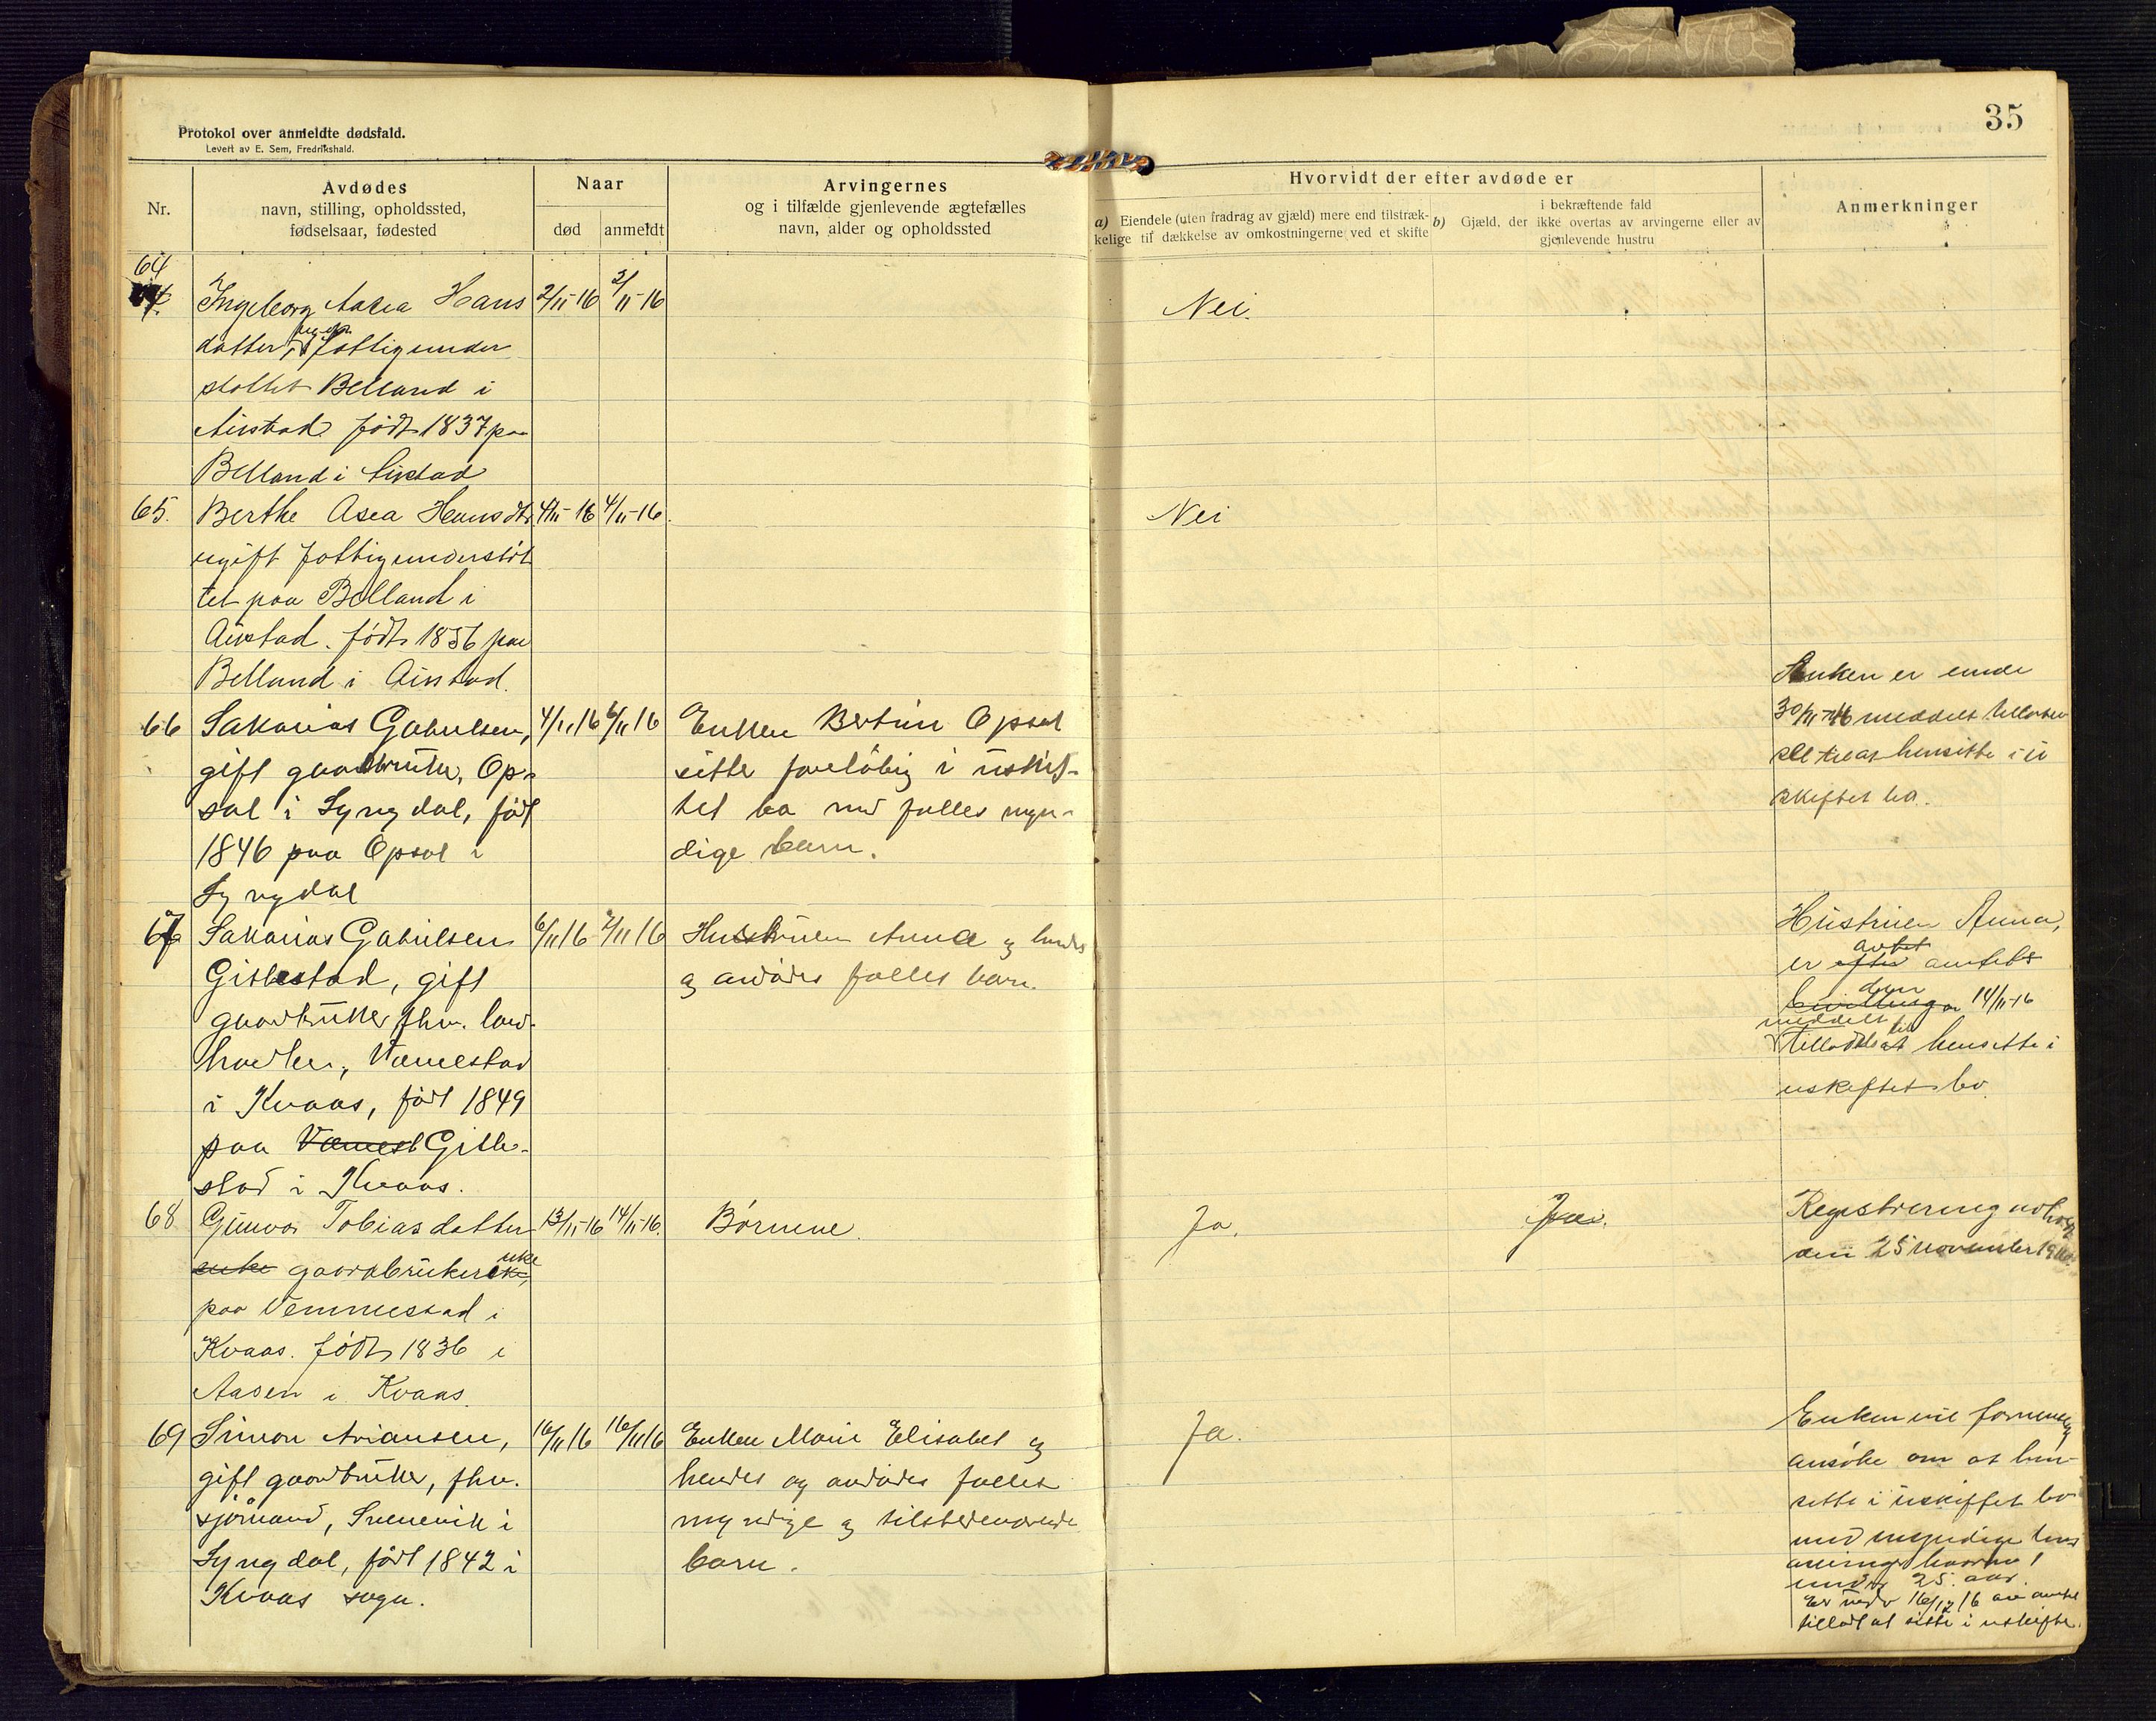 35
Protokol over anmeldte dødsfald.
Levert av E. Sem, Fredrikshald.
Nr.
Avdødes
navn, stilling, opholdssted,
fødselsaar, fødested
Naar
død
anmeldt
Arvingernes
og i tilfælde gjenlevende ægtefælles
navn, alder og opholdssted
Hvorvidt der efter avdøde er
a) Eiendele (uten fradrag av gjæld) mere end tilstræk-
kelige til dækkelse av omkostningerne ved et skifte
i bekræftende fald
b) Gjæld, der ikke overtas av arvingerne eller av
gjenlevende hustru
Anmerkninger
64
Ingeborg Aasea Hans 2/11-16 3/11-16 Nei.
datter, fattigunder
støttet Belland i
Austad født 1837 paa
Belland i Austad
65. Berthe Asea Hansdtr 4/11-16 4/11-16. Nei
ugift fattigunderstøt
tet paa Belland i
Austad. født 1856 paa
Belland i Austad.
66 Sakarias Gabrielsen, 4/11 16 6/11 16 Enken Bertine Opsal
gift gaardbruker, Op-
sal i Lyngdal, født
1846 paa Opsal i
Lyngdal
sitter foreløbig i uskif-
tet bo med fælles myn-
dige barn.
Enken er under
30/11-16 meddelt tilladel
se til at hensitte i u
skiftet bo.
67 Sakarias Gabrielsen 6/11 16 7/11 16 Hustruen Anna og hendes
Gitlestad, gift
gaardbruker, fhv. lands-
handler, Vemestad
i Kvaas, født 1849
paa Vemest Gitle-
stad i Kvaas.
og avdødes fælles barn.
Hustruen Anna,
er efter avtet amtets
bevilling den 14/11-16
meddelt
tilladelse til at hensitte i
uskiftet bo.
68 Gunvor Tobiasdatter 13/11-16 14/11-16. Børnene. Ja. Nei.
enke gaardbrukerenke
paa Vemmestad i
Kvaas. født 1836 i
Aasen i Kvaas.
Registrering avholdt
den 25 november 1916.
69 Simon Ariansen, 16/11 16 16/11 16 Enken Marie Elisabet og Ja.
gift gaardbruker, fhv.
sjømand, Svenevik i
Lyngdal, født 1842 i
Kvaas sogn.
hendes og avdødes fælles
myndige og tilstedeværende
barn.
Enken vil fornemlig
ansøke om at hen-
sitte i uskiftet bo
med myndige livs
arvinger hvorav 1
under 25 aar.
Er under 16/12 16 av amtet
tilladt at sitte i uskifte.